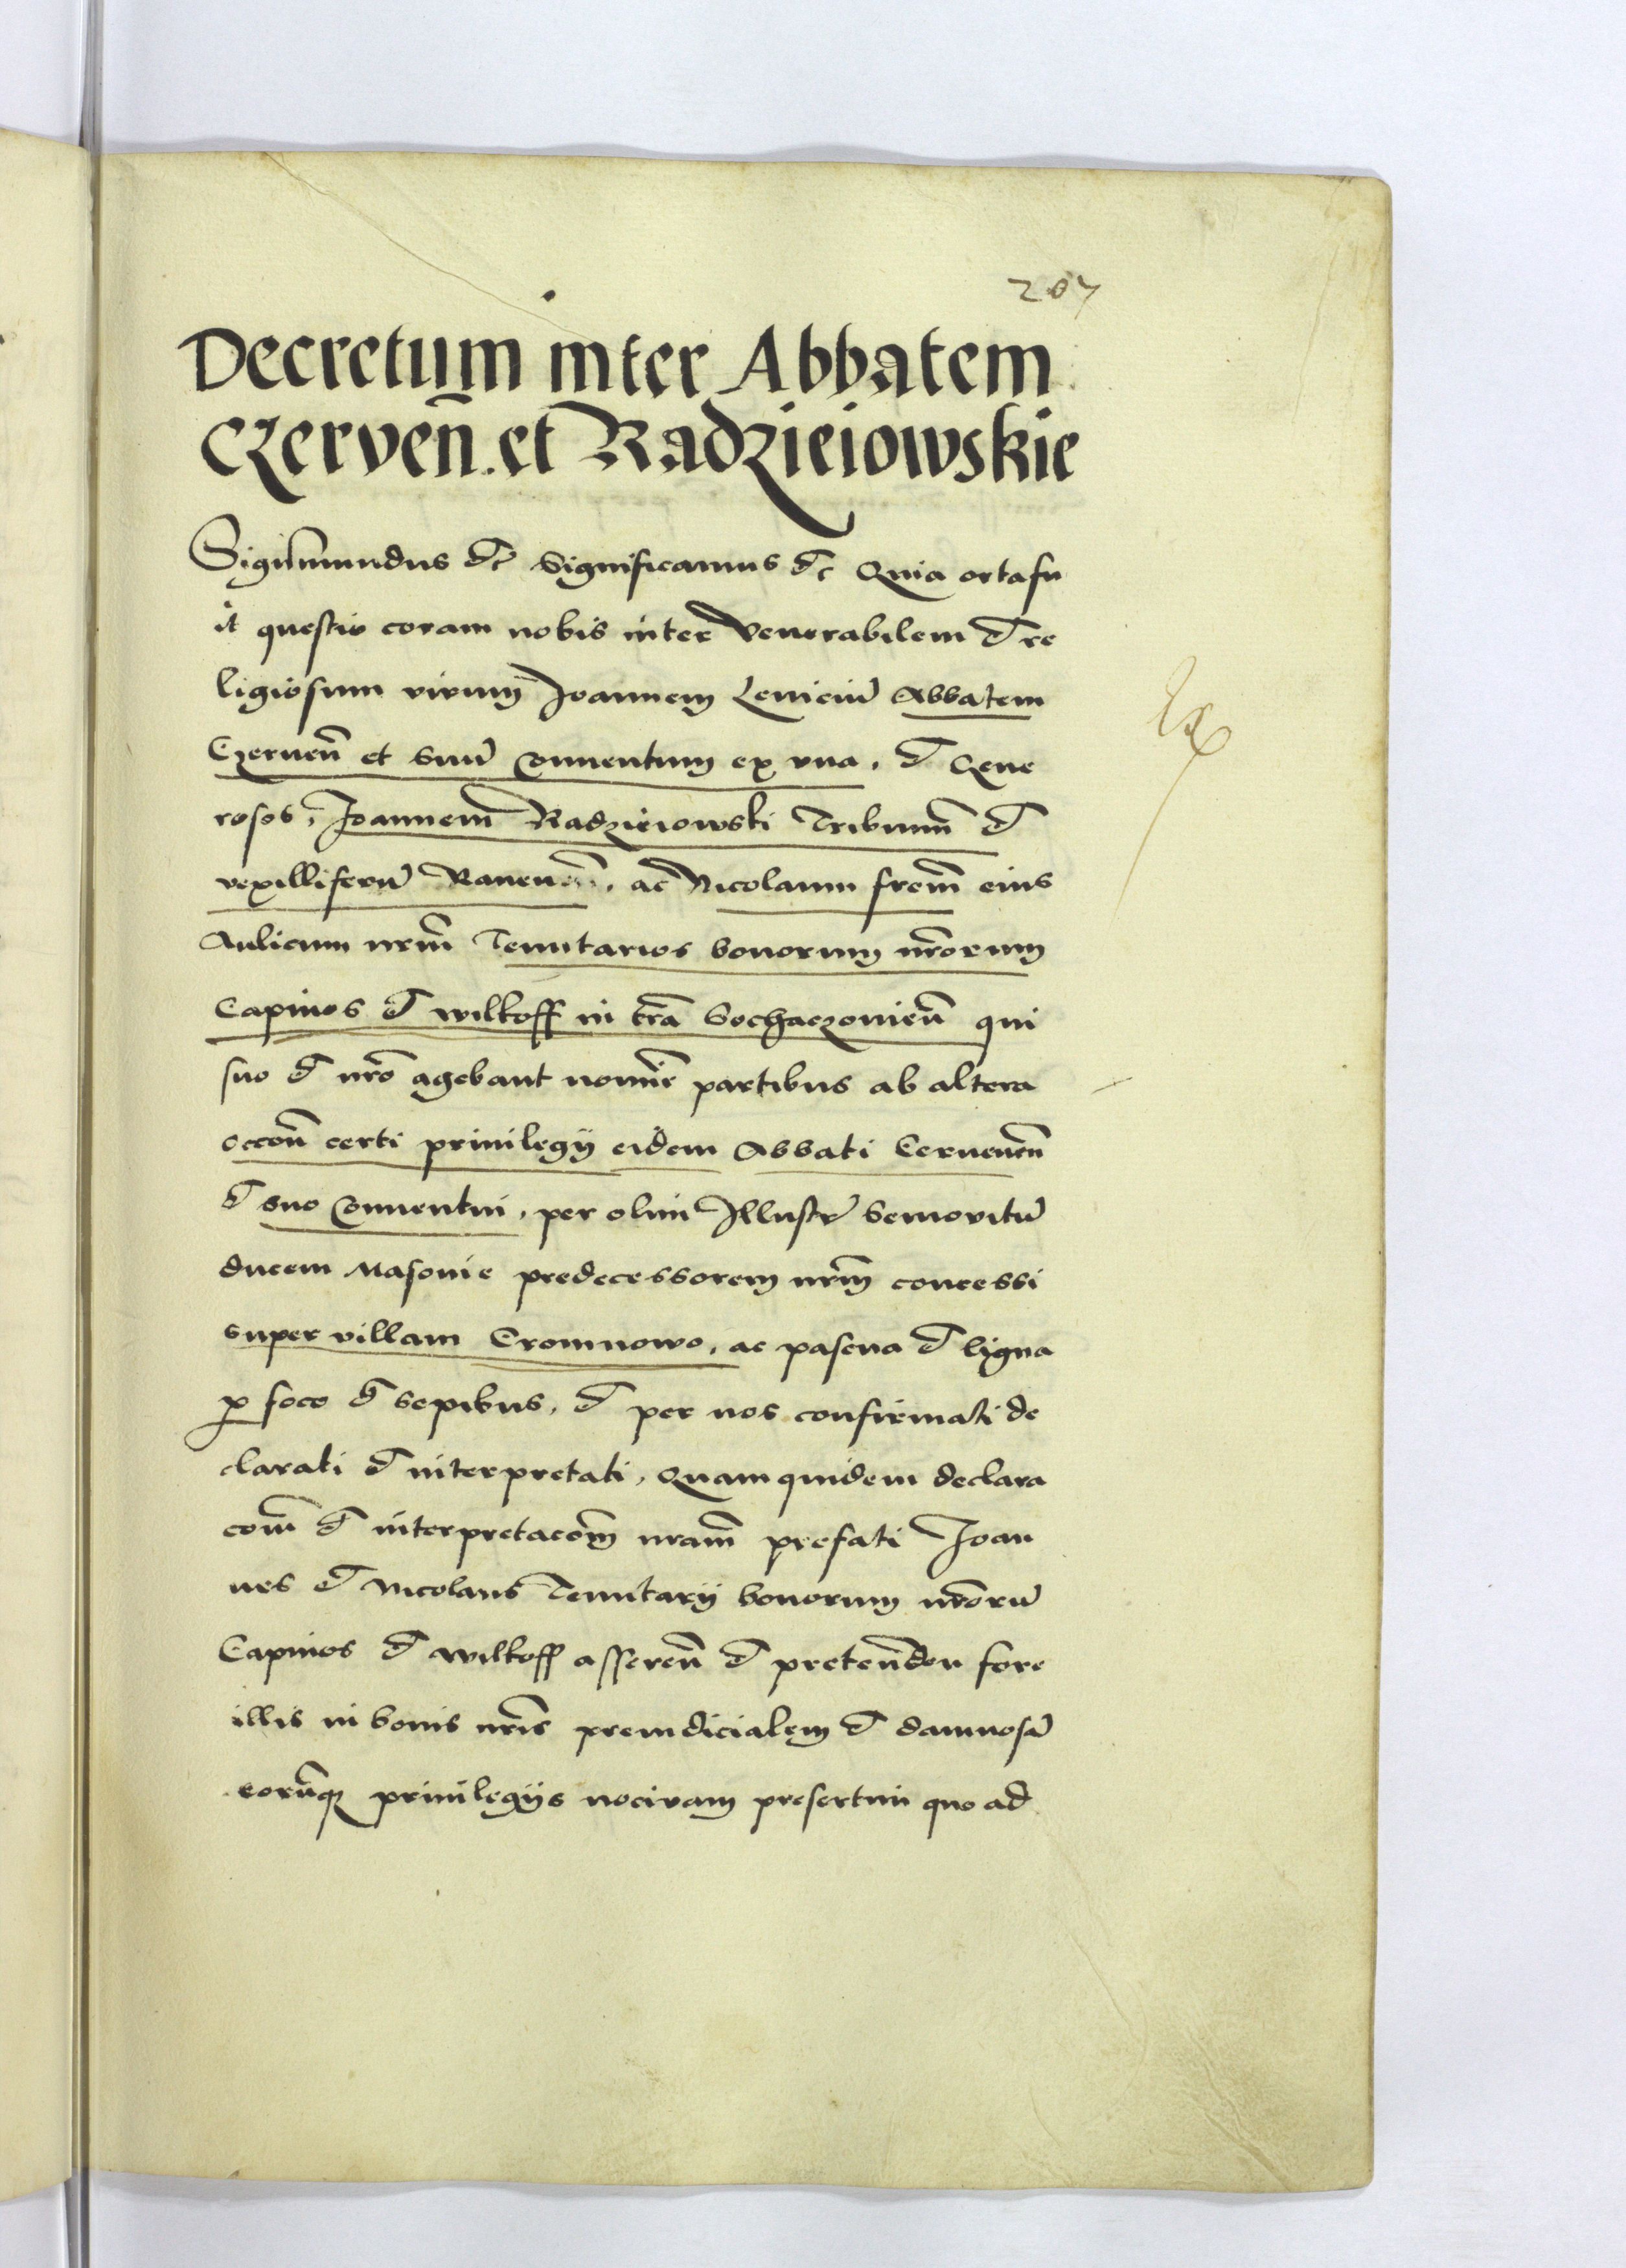 207
Decretum inter Abbatem
Czerveñ. et Radzieiowskie
Sigismundus &c Significamus &c Quia orta fu
it questio coram nobis inter Venerabilem et re
ligiosum virum Joannem Leniciū Abbatem
Czerueñ et suū Conuentum ex vna, et Gene
rosos, Joannem Radzieiowski Tribunū et
vexilliferū Rauen, ac Nicolaum frem̄ eius
Aulicum nrm̄ Tenutarios bonorum nrōrum
Capinos et wilkoff in trā Sochaczouieñ qui
suo et nrō agebant nomīe partibus ab altera
occoñ certi priuilegij eidem Abbati Ceruenen̄
et suo Conuentui, per olim Illustrē Semouitū
ducem Masouie predecessorem nrm̄ concessi
super villam Cromnowo, ac pascua et ligna
p foco et sepibus, et per nos confirmati de
clarati et interpretati, Quam quidem declara
com̄ et interpretacom̄ nram̄ prefati Joan
nes et Nicolaus Tenutarij bonorum nrōrū
Capinos et wilkoff assereñ et pretendeñ fore
illis in bonis nrīs preiudicialem et damnosā
eorūq priuilegijs nociuam presertim quo ad